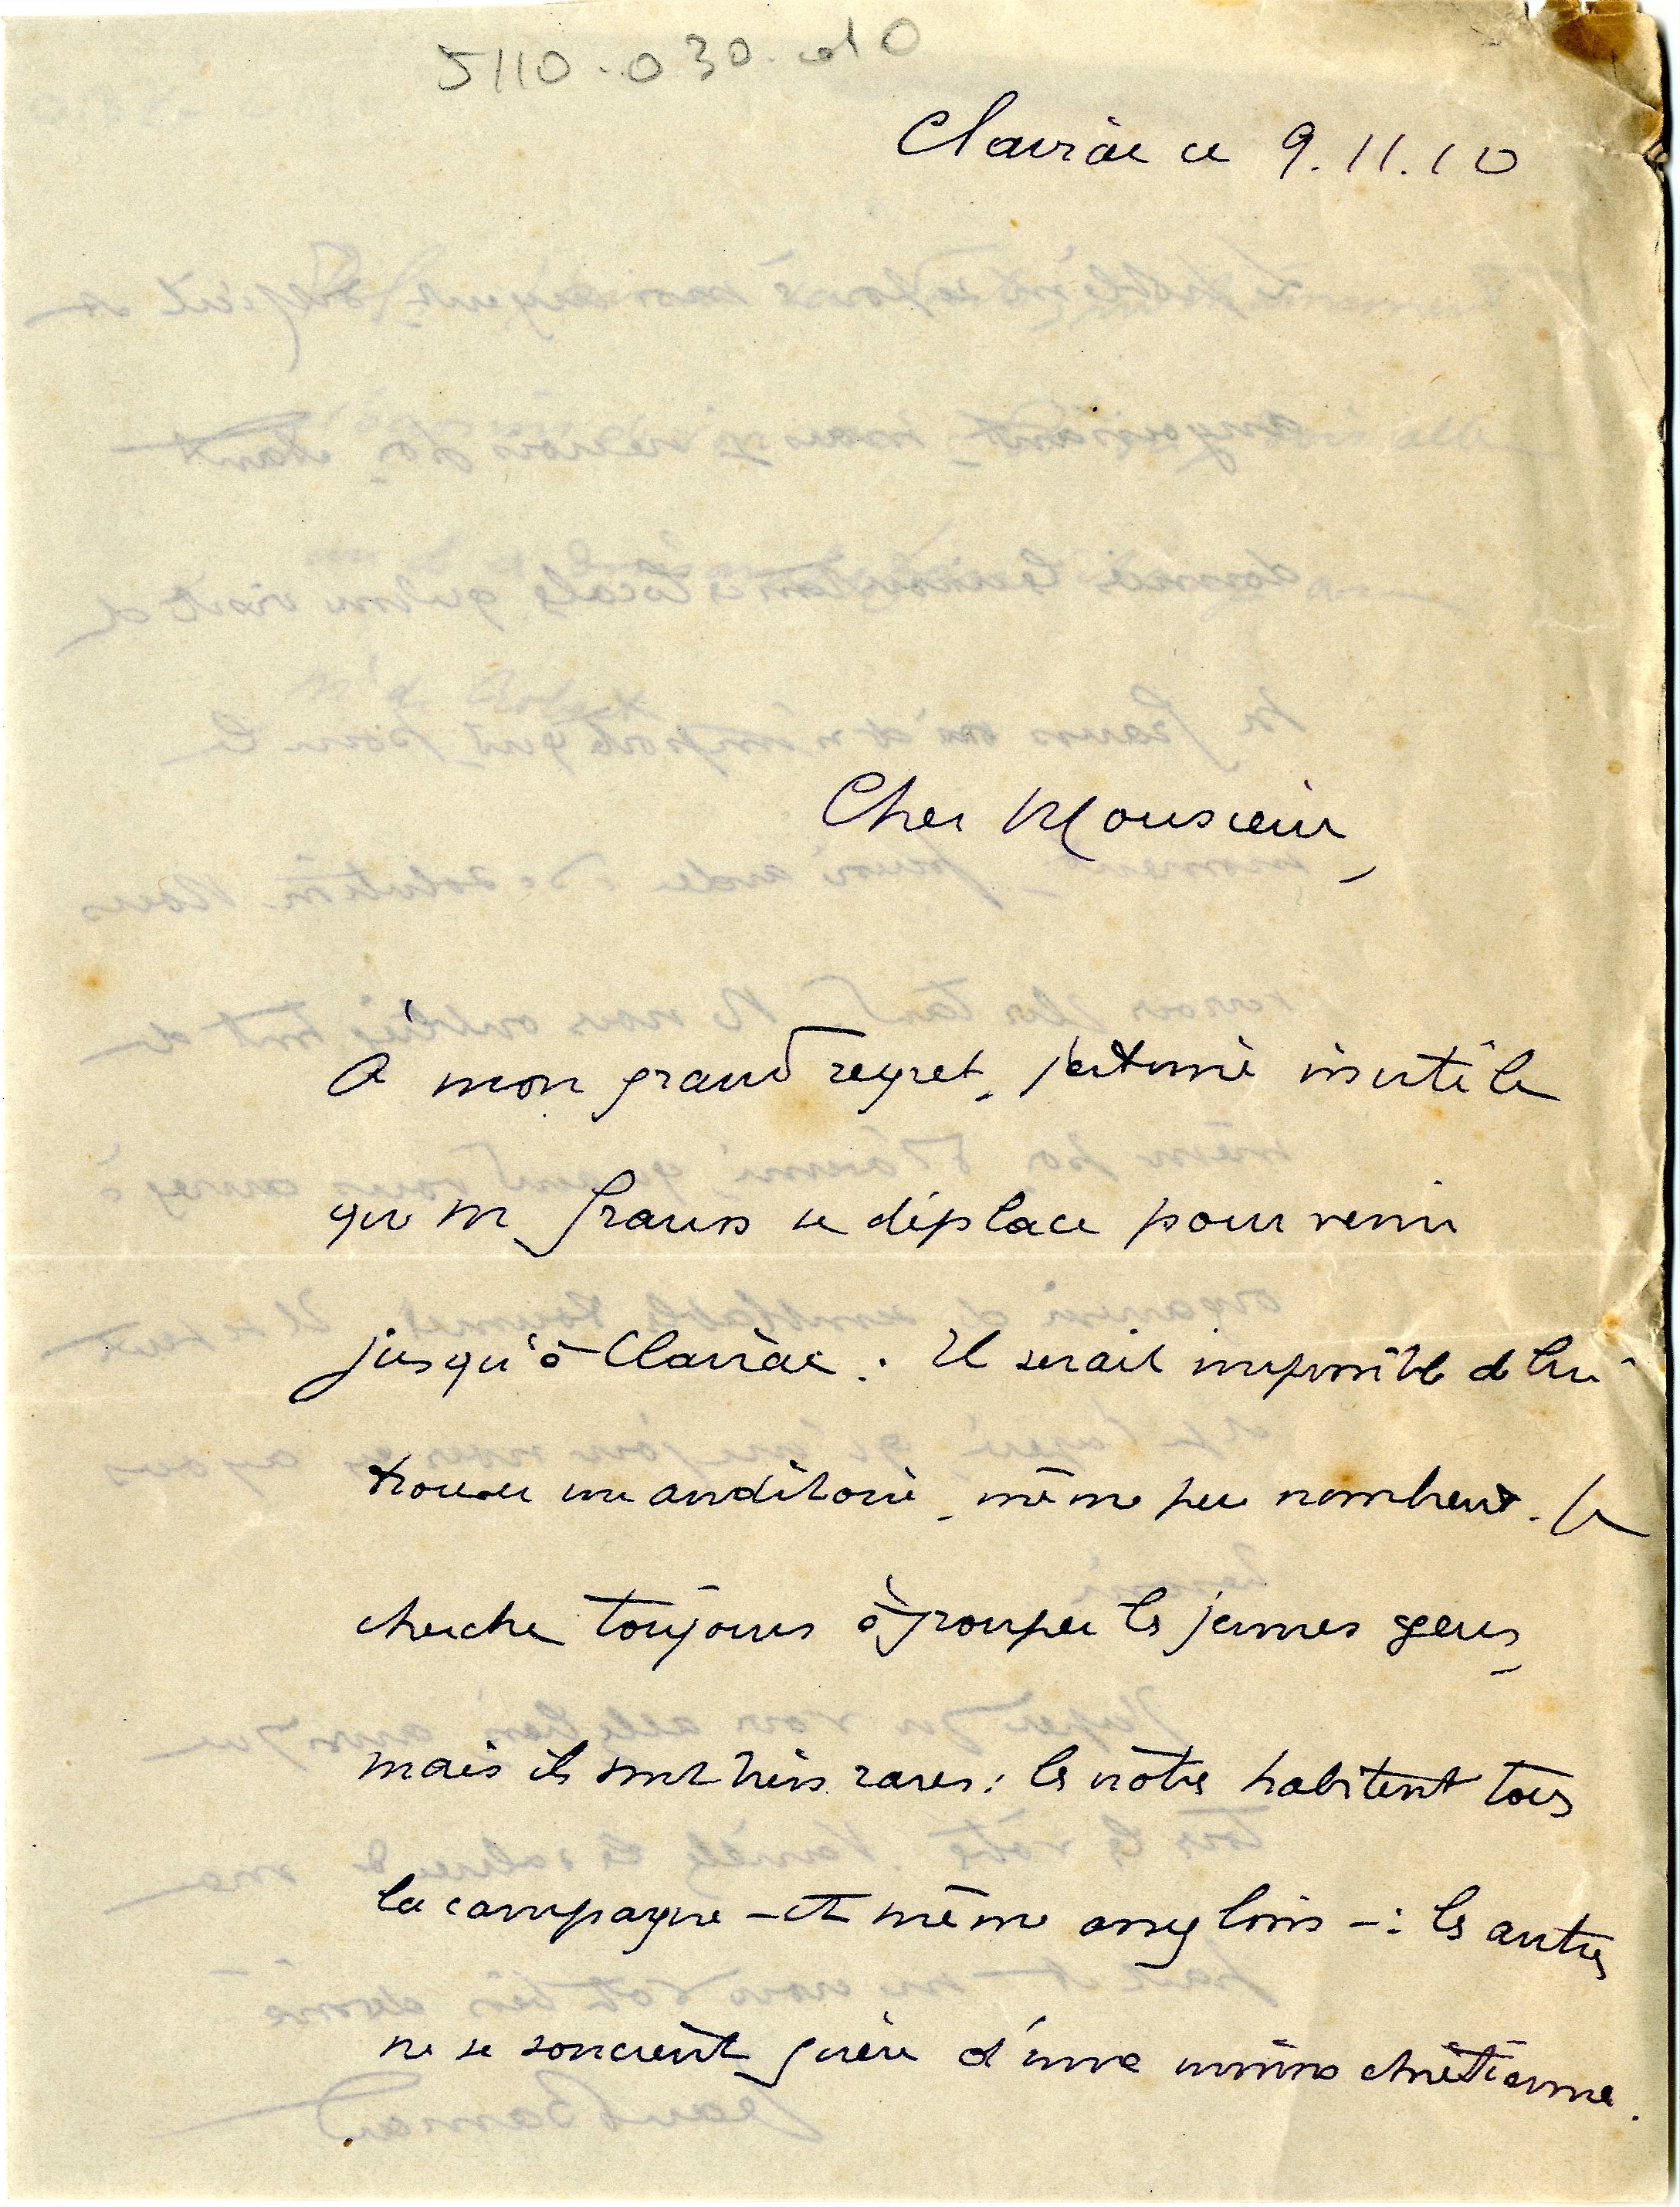 5110.030.010
Clairac ce 9.11.10
Cher Monsieur,
A mon grand regret, j'estime inutile
que M Grauss se déplace pour venir
jusqu'à Clairac. Il serait impossible de lui
trouver un auditoire, même peu nombreux. Je
cherche toujours à grouper les jeunes gens,
mais ils sont très rares : les nôtres habitent tous
la campagne – et même assez loin – : les autres
ne se soucient guère d'une union chrétienne.